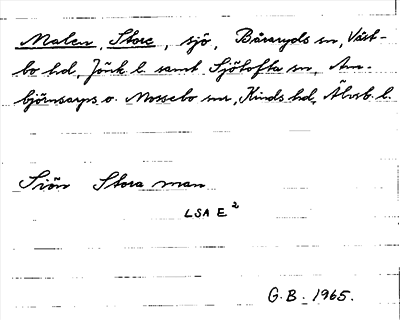 Malen, Store, sjö, Båraryds sn, Väst-
bo hd, Jönk. l. samt Sjötofta sn, Am-
björnsarps o. Mossebo snr, Kinds hd, Älvsb. l.
Siön Stora man
LSA E²
G.B. 1965.